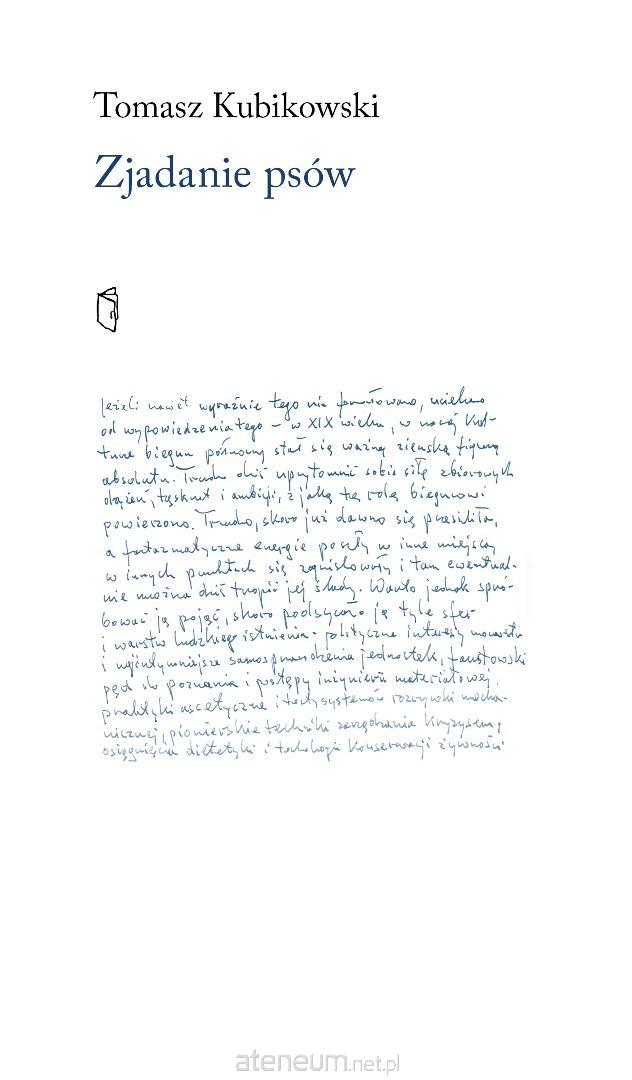 Tomasz Kubikowski
Zjadanie psów
Jeżeli nawet wyraźnie tego nie, ucieknę
od wypowiedzenia tego – w XIX wieku, w naszej kul-
turze biegun północny stał się ważną ziemską figurą
absolutu. Trudno dziś uprzytomnić sobie siłę zbiorowych
dążeń, tęsknot i ambicji, z jaką tę rolę biegunowi
powierzono. Trudno, skoro już dawno się przesiliła,
a fantazmatyczne energie poszły w inne miejsca,
w innych punktach się i tam ewentual-
nie można dziś tropić jej ślady. Warto jednak spró-
bować ją pojąć, skoro podsycało ją tyle sfer
i warstw ludzkiego istnienia: polityczne interesy mocarstw
i najintymniejsze samosprawdzenia jednostek, faustowski
pęd do poznania i postępy inżynierii materiałowej,
praktyki ascetyczne i systemów rozrywki mecha-
nicznej, pionierskie techniki zarządzania kryzysem,
osiągnięcia dietetyki i technologii konserwacji żywności
ateneum.net.pl